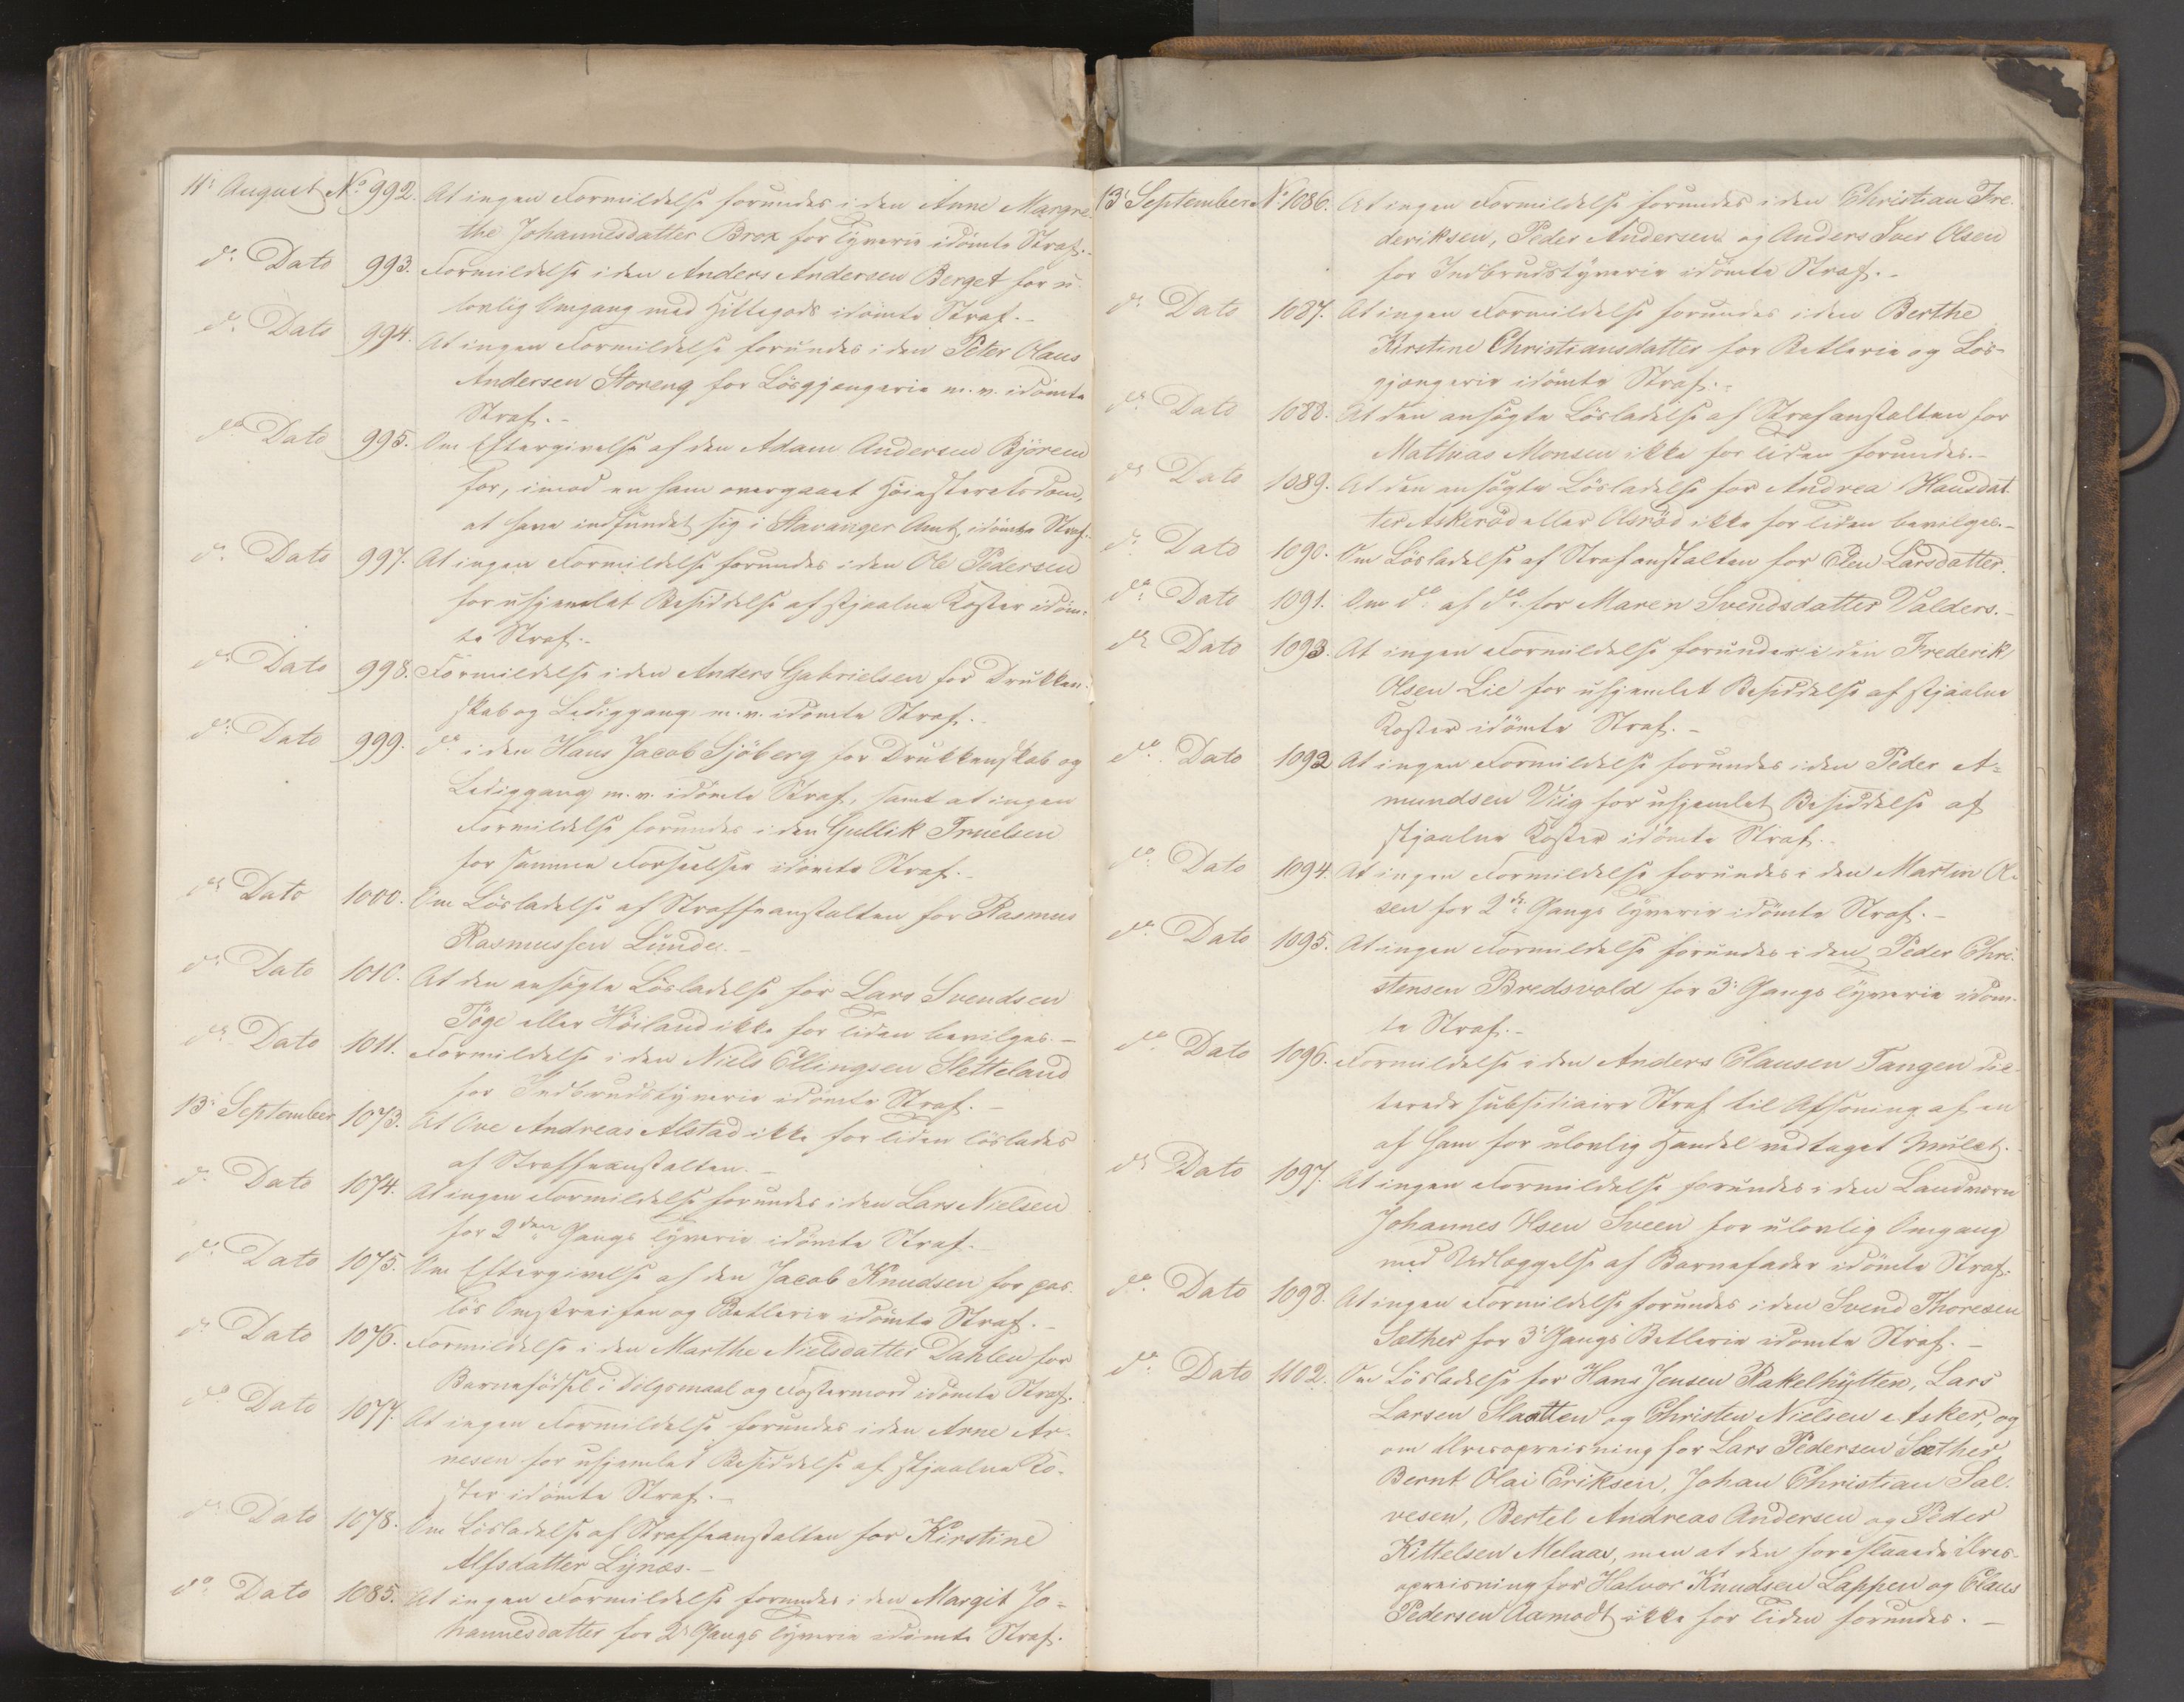 11t August No 992. At ingen Formildelse forundes i den Anne Margre-
the Johannesdatter Brox for Tyverie idömte Straf.-
do Dato 993. Formildelse i den Anders Andersen Berget for u-
lovlig Omgang med Hittegods idömte Straf.-
do Dato 994. At ingen Formildelse forundes i den Peter Olaus
Andersen Storeng for Lösgjængerie m. v. idömte
Straf.-
do Dato 995. Om Eftergivelse af den Adam Andersen Björem
for, imod en ham overgaaet Höiesteretsdom,
at have indfundet sig i Stavanger Amt, idömte Straf.-
do Dato 997. At ingen Formildelse forundes i den Ole Pedersen
for uhjemlet Besiddelse af stjaalne Koster idöm-
te Straf.-
do Dato 998. Formildelse i den Anders Gabrielsen for Drukken-
skab og Lediggang m. v. idömte Straf.-
do Dato 999. do i den Hans Jacob Sjöberg for Drukkenskab og
Lediggang m. v. idömte Straf, samt at ingen
Formildelse forundes i den Gullik Truelsen
for samme Forseelser idömte Straf.-
do Dato 1000. Om Lösladelse af Straffeanstalten for Rasmus
Rasmussen Lunde.-
do Dato 1010. At den ansögte Lösladelse for Lars Svendsen
Töge eller Höiland ikke for Tiden bevilges.-
do Dato 1011. Formildelse i den Niels Ellingsen Sletteland
for Indbrudstyverie idömte Straf.-
13t September 1073. At Ove Andreas Alstad ikke for Tiden löslades
af Straffeanstalten.-
do Dato 1074. At ingen Formildelse forundes i den Lars Nielsen
for 2den Gangs Tyverie idömte Straf.-
do Dato 1075. Om Eftergivelse af den Jacob Knudsen for pas-
lös Omstreifen og Betlerie idömte Straf.-
do Dato 1076. Formildelse i den Marthe Nielsdatter Dahlen for
Barnefödsel i Dölgsmaal og Fostermord idömte Straf.
do Dato 1077. At ingen Formildelse forundes i den Arne Ar-
nesen for uhjemlet Besiddelse af stjaalne Ko-
ster idömte Straf.-
do Dato 1078. Om Lösladelse af Straffeanstalten for Kirstine
Alfsdatter Lynæs.-
do Dato 1085. At ingen Formildelse forundes i den Margit Jo-
hannesdatter for 2t Gangs Tyverie idömte Straf.
13t September No 1086. At ingen Formildelse forundes i den Christian Fre-
deriksen, Peder Andersen og Anders Iver Olsen
for Indbrudstyverie idömte Straf.-
do Dato 1087. At ingen Formildelse forundes i den Berthe
Kirstine Christiansdatter for Betlerie og Lös-
gjængerie idömte Straf.-
do Dato 1088. At den ansögte Lösladelse af Strafanstalten for
Mathias Monsen ikke for Tiden forundes.-
do Dato 1089. At den ansögte Lösladelse for Andrea Hansdat-
ter Askeröd eller Olsröd ikke for Tiden bevilges.-
do Dato 1090. Om Lösladelse af Strafanstalten for Elen Larsdatter.
do Dato 1091. Om do af do for Maren Svendsdatter Valders.-
do Dato 1093. At ingen Formildelse forundes i den Frederik
Olsen Lie for uhjemlet Besiddelse af stjaalne
Koster idömte Straf.-
do Dato 1092 At ingen Formildelse forundes i den Peder A-
mundsen Viig for uhjemlet Besiddelse af
stjaalne Koster idömte Straf.-
do Dato 1094. At ingen Formildelse forundes i den Martin Ol-
sen for 2den Gangs Tyverie idömte Straf.-
do Dato 1095. At ingen Formildelse forundes i den Peder Chri-
stensen Bredsvold for 3t Gangs Tyverie idöm-
te Straf.-
do Dato 1096. Formildelse i den Anders Clausen Tangen dic-
terede subsidiaire Straf til Afsoning af en
af ham for ulovlig Handel vedtaget Mulct.-
do Dato 1097. At ingen Formildelse forundes i den Landværn
Johannes Olsen Sveen for ulovlig Omgang
med Udlæggelse af Barnefader idömte Straf.
do Dato 1098. At ingen Formildelse forundes i den Svend Thoresen
Sæther for 3t Gangs Betlerie idömte Straf.-
do Dato 1102. Om Lösladelse for Hans Jensen Rakelhytten, Lars
Larsen Slaatten og Christen Nielsen Asker, og
om Æresopreisning for Lars Pedersen Sæther,
Bernt Olai Eriksen, Johan Christian Sal-
vesen, Bertel Andreas Andersen og Peder
Kittelsen Melaas, men at den foreslaaede Æres-
opreisning for Halvor Knudsen Lappen og Claus
Pedersen Aamodt ikke for Tiden forundes.-